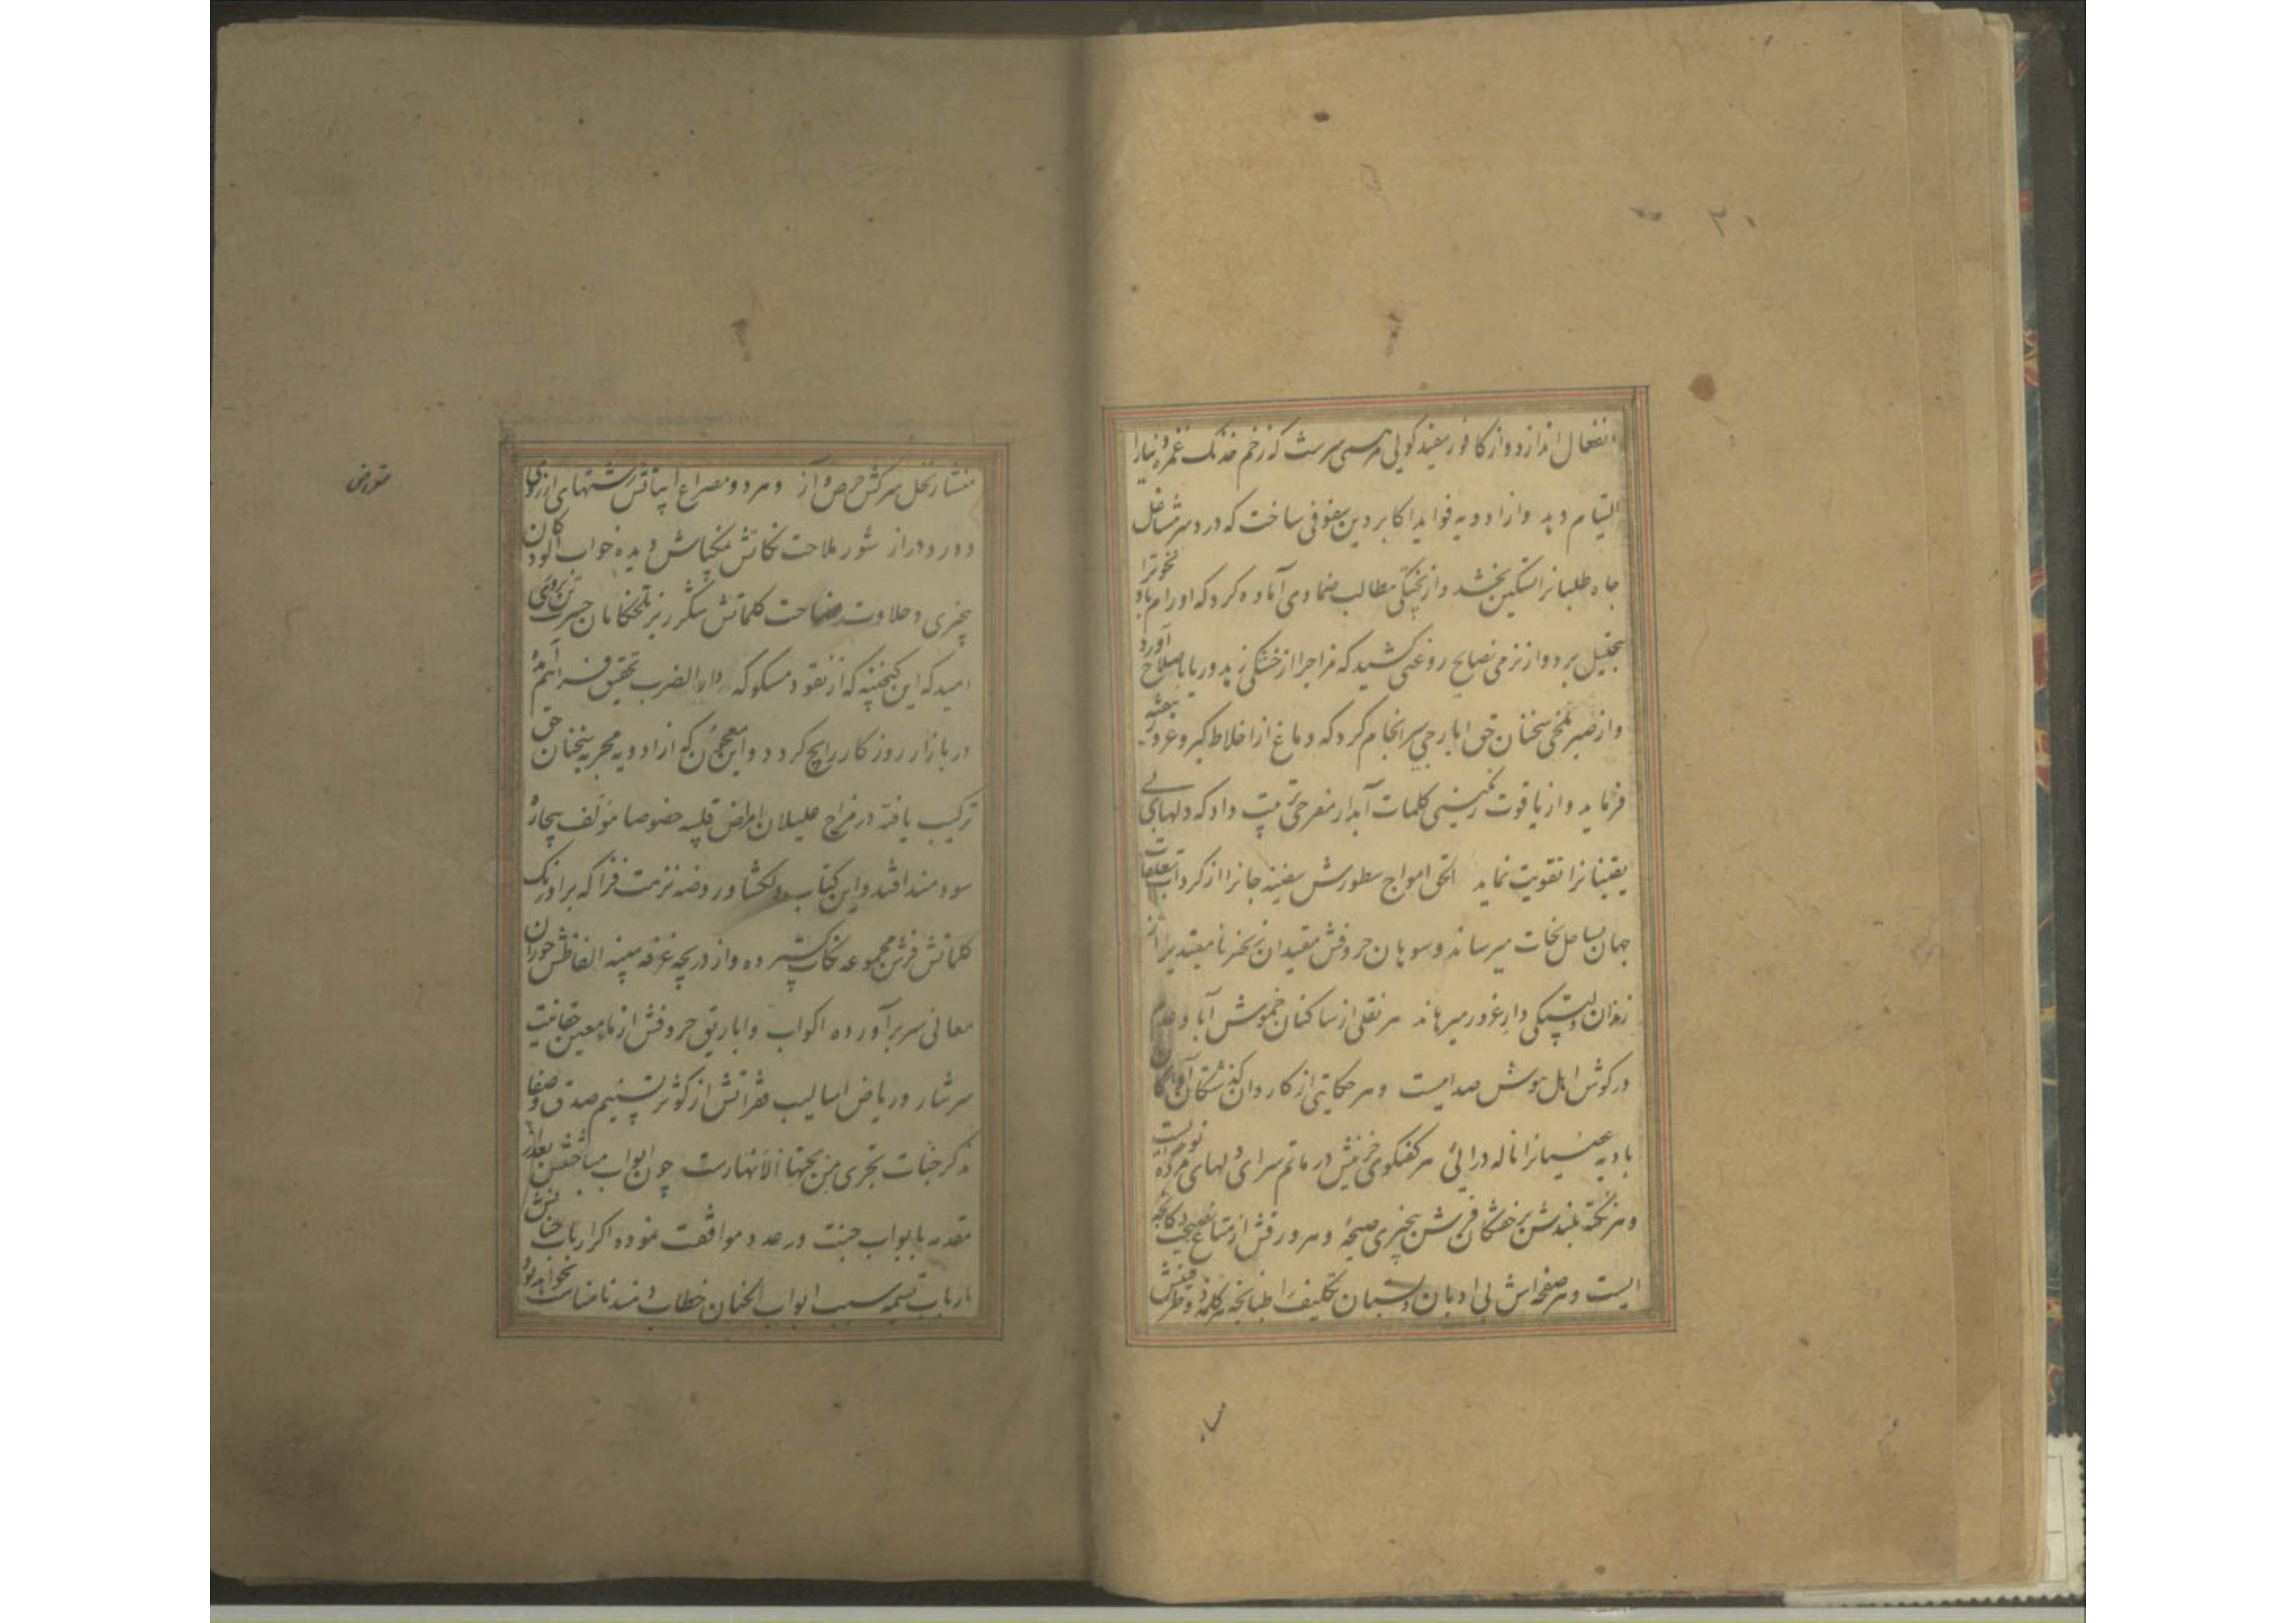 ۲۰
انفعال اندازد و از کافور سفیدگویی مرهمی سرشت که زخم خدنک غمزه دنیا را
التیام دهد و از ادویه فواید اکابر دین سفوفی ساخت که درد سر مشاغل
جاه طلبانرا تسکین بخشد و از پختگی مطالب ضمادی آماده کرد که اورام باد نخوترا
بتحلیل برد و از نرمی نصایح روغنی کشید که مزاجرا از خشکی زهد ریا باصلاح آورد
و از صبر تلخی سخنان حق ایارجی سرانجام کرد که دماغ از اخلاط کبر و غرور تنقیه
فرماید و از یاقوت رنگینی کلمات آبدار مفرحی ترتیب داد که دلهای بی
یقینانرا تقویت نماید الحق امواج سطورش سفینه جانرا از گرداب تعلقات
جهان بساحل نجات میرساند و سوهان حروفش مقیدان زنجیر نامقیدیرا از
زندان دلبستگی دار غرور میرهاند هر نقلی از ساکنان خموش آباد عدم
در کوش اهل هوش صدایست و هر حکایتی از کاروان گذشتگان آواره کان
بادیه عصیانرا ناله درائی هر گفتگوی حزینش در ماتم سرای دلهای مرده نوحه ایست
و هر نکته بلندش بر خفتگان فرش بیخبری صیحه و هر ورقش از متاع نصیحت دکانچه
ایست و هر صفحه اش بی ادبان دبستان تکلیف را طبانچه هر کلمه دو حرفیش
منشار نخل سرکش حرص و آز و هر دو مصراع ابیاتش رشتهای آرزوی
دور و دراز شور ملاحت نکاتش نمکپاش دیده خواب آلودکان
بیخبری و حلاوت فصاحت کلماتش شکرریز تلخکامان حسرت
امید که این گنجینه که از نقود مسکوکه دار الضرب تحقیق فراهم آمده
در بازار روزکار رایج کردد و این معجون که از ادویه مجربه سخنان حق
ترکیب یافته در مزاج علیلان امراض قلبیه خصوصا مؤلف بیچاره
سودمند افتد و این کتاب دلکشا و روضه نزهت فزا که بر اورنک
کلماتش فرش مجموعه نکات گسترده و از دریچه غرفه سپینه الفاظش حوران
معانی سر برآورده اکواب و اباریق حروفش از ماء معین حقانیت
سرشار و ریاض اسالیب فقراتش از کوثر و تسنیم صدق و صفا
مذکر جنات تجری من تحتها الانهارست چون ابواب مباحثش بعد از
مقدمه با ابواب جنت در عدد موافقت نموده اکر ارباب خانش
بارباب تسمیه سبب ابواب الجنان خطاب دهند نامناسب نخواهد بود